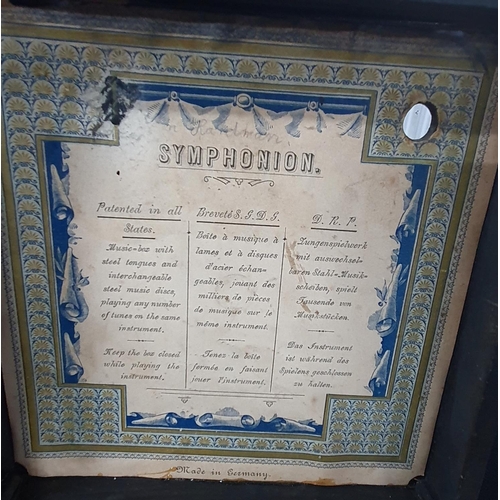 SYMPHONION.
Patented in all
States.
Music-box with
steel tongues and
interchangeable
steel music discs,
playing any number
of tunes on the same
instrument.
Keep the box closed
while playing the
instrument.
Breveté S. G. D. G.
Boîte à musique à
lames et à disques
d'acier échan-
geables, jouant des
milliers de pièces
de musique sur le
même instrument.
Tenez la boîte
fermée en faisant
jouer l'instrument.
D. R. P.
Zungenspielwerk
mit auswechsel-
baren Stahl-Musik-
scheiben, spielt
Tausende von
Musikstücken.
Das Instrument
ist während des
Spielens geschlossen
zu halten.
Made in Germany.